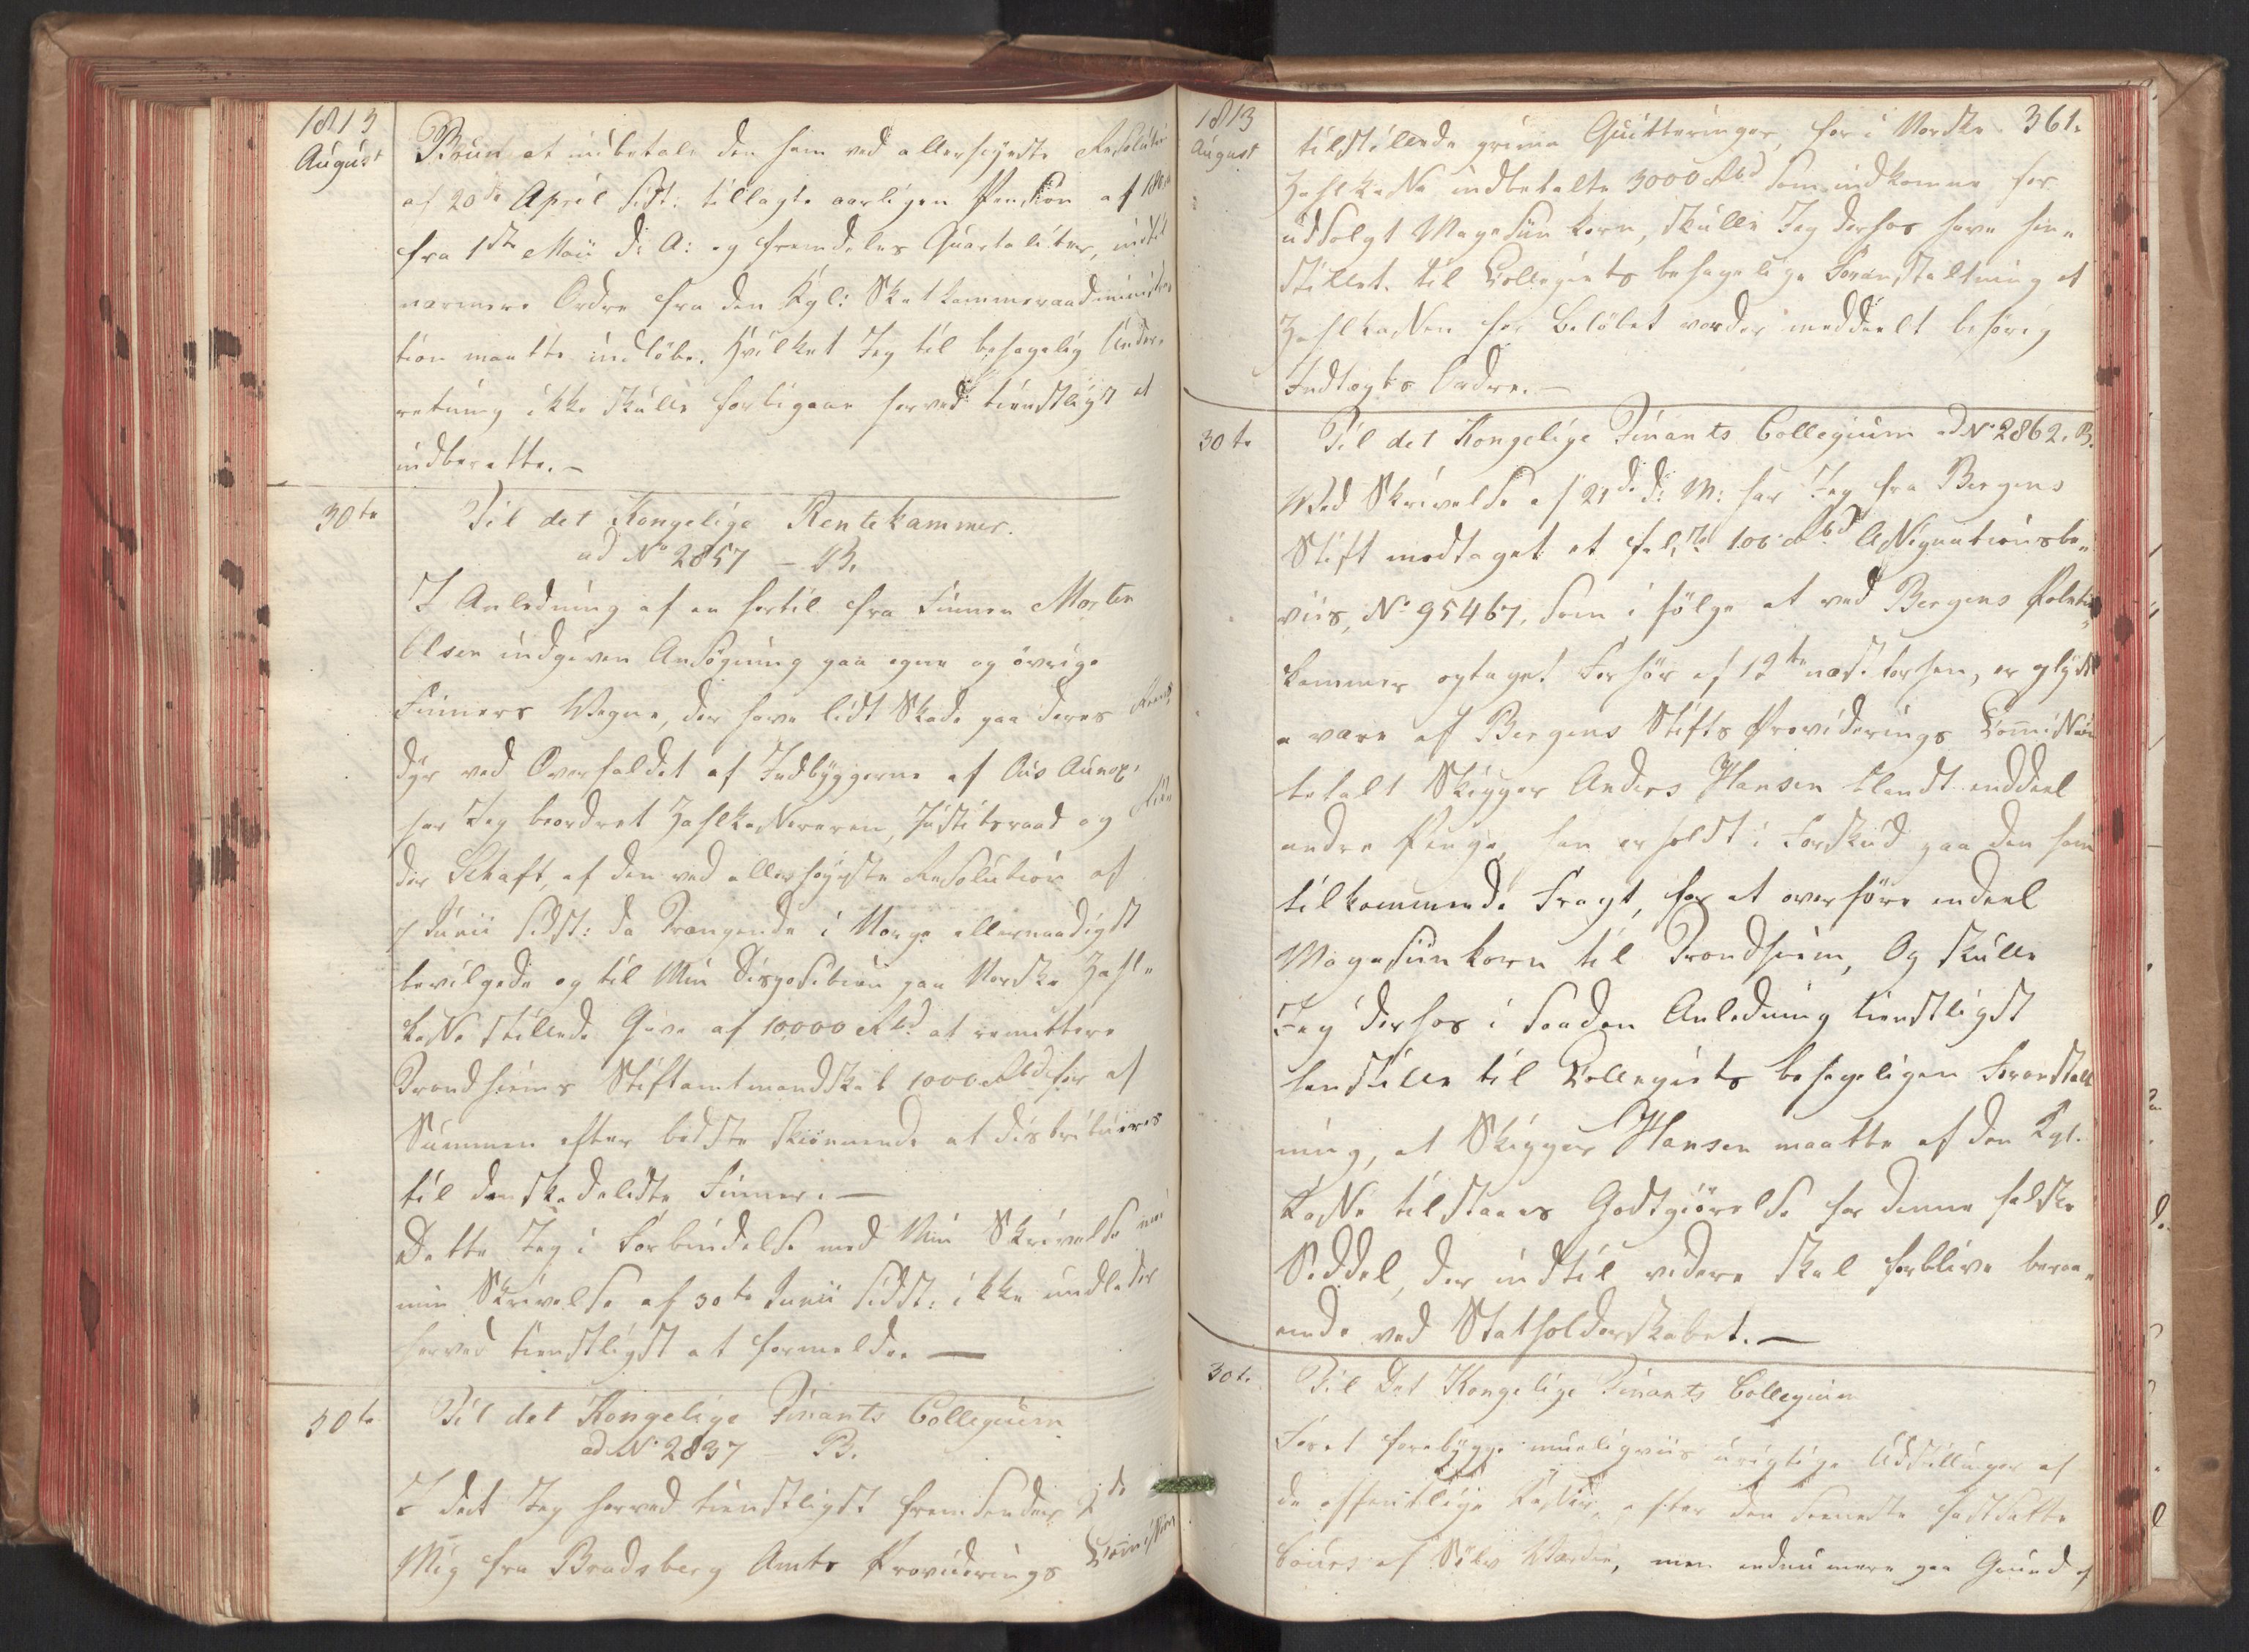 1813
August
Bruun at udbetale den ham ved allerhøyeste Resolution
af 20de April sidst: tillagte aarligen Pension af
fra 1ste Maii d: A: og fremdeles Quartaliter, indtil
nærmere Ordre fra den Kgl: Skatkammeradministra
tion maatte indløbe. Hvilket Jeg til behagelig Under,
retning ikke skulle forbigaae herved tienstligst at
indberette. –
30te
Til det Kongelige Rentekammer.
ad No 2857 – B.
I Anledning af en hertil fra Finnen Morten
Olsen indgiven Ansøgning paa egne og øvrige
Finners Vegne, der have lidt Skade paa deres Reens,
dyr ved Overfaldet af Indbyggerne af
har Jeg beordret Zahlkassereren, Justitsraad og
der Schaft, af den ved allerhøyeste Resolution af
7 Junii sidst: de Trængende i Norge allernaadigst
bevilgede og til Min Disposition paa Norske Zahl„
kasse stillede Gave af 10,000 Rbd at remittere
Trondhiems Stiftamtmandskab 1000 Rbd for af
Summen efter bedste skiønnende at distribueres
til de skadelidte Finner. –
Dette Jeg i Forbindelse med Min Skrivelse
min Skrivelse af 30te Junii sidst: ikke undlader
herved tienstligst at formelde. –
30te
Til det Kongelige Finants Collegium
ad No 2837 B.
I det Jeg herved tienstligst fremsender 2de
Mig fra Bradsberg Amts Providerings Commission
1813
August
361.
tilstillede Qvitteringer, for i Norske
Zahlkasse indbetalte 3000 Rbd som indkomne for
udsolgt Magasin korn, skulle Jeg derhos have hen„
stillet til Collegiets behagelige Foranstaltning at
Zahlkassen for Beløbet vorder meddeelt behørig
Indtægts Ordre. –
30te
Til det Kongelige Finants Collegium ad No 2862. B.
Ved Skrivelse af 21de d: M: har Jeg fra Bergens
Stift modtaget et falskt 100 Rbd Assignationsbe„
viis, No 95467, som i følge et ved Bergens Politie
kammer optaget Forhør af 12te næst. forhen, er
a være af Bergens Stifts Providerings Commission
betalt Skipper Anders Hansen blandt enddeel
andre Penge, han erholdt i Forskud paa den ham
tilkommende Fragt, for at overføre endeel
Magasinkorn til Trondhiem, Og skulle
Jeg derhos i saadan Anledning tienstligst
henstille til Collegiets behageligen Foranstalt
ning, at Skipper Hansen maatte af den Kgl.
Kasse tilstaaes Godtgiørelse for denne falske
Seddel, der indtil videre skal forblive beroe„
ende ved Statholderskabet. –
30te
Til Det Kongelige Finants Collegium
For at forebygge mueligviis urigtige Udstillinger af
de offentlige Kasser, efter den seeneste fastsatte
Cours af Sølv Værdie, men endnu mere paa Grund af